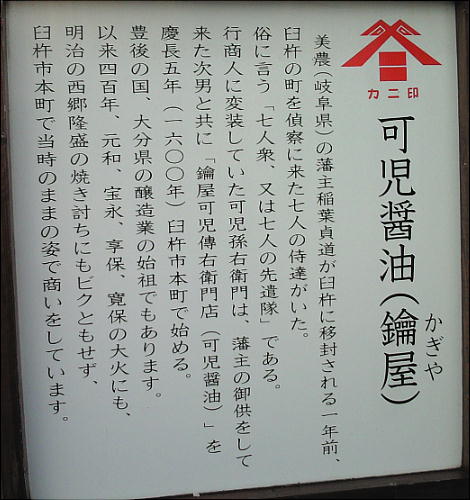 カニ印
可児醤油(鑰屋)
かぎや
美農(岐阜県)の藩主稲葉貞道が臼杵に移封される一年前、
臼杵の町を偵察に来た七人の侍達がいた。
俗に言う「七人衆、又は七人の先遣隊」である。
行商人に変装していた可児孫右衛門は、藩主の御供をして
来た次男と共に「鑰屋可児傳右衛門店(可児醤油)」を
慶長五年(一六〇〇年)臼杵市本町で始める。
豊後の国、大分県の醸造業の始祖でもあります。
以来四百年、元和、宝永、享保、寛保の大火にも、
明治の西郷隆盛の焼き討ちにもビクともせず、
臼杵市本町で当時のままの姿で商いをしています。